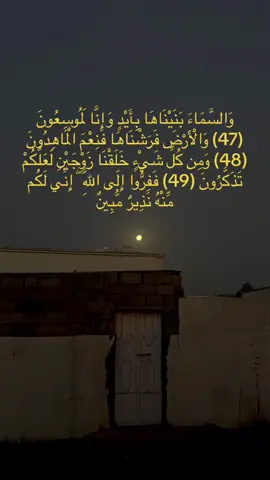 وَالسَّمَاءَ بَنَيْنَاهَا بِأَيْدٍ وَإِنَّا لَمُوسِعُونَ
(47) وَالْأَرْضَ فَرَشْنَاهَا فَنِعْمَ الْمَاهِدُونَ
(48) وَمِن كُلِّ شَيْءٍ خَلَقْنَا زَوْجَيْنِ لَعَلَّكُمْ
تَذَكَّرُونَ (49) فَفِرُّوا إِلَى اللَّهِ ۖ إِنِّي لَكُم
مِّنْهُ نَذِيرٌ مُّبِينٌ